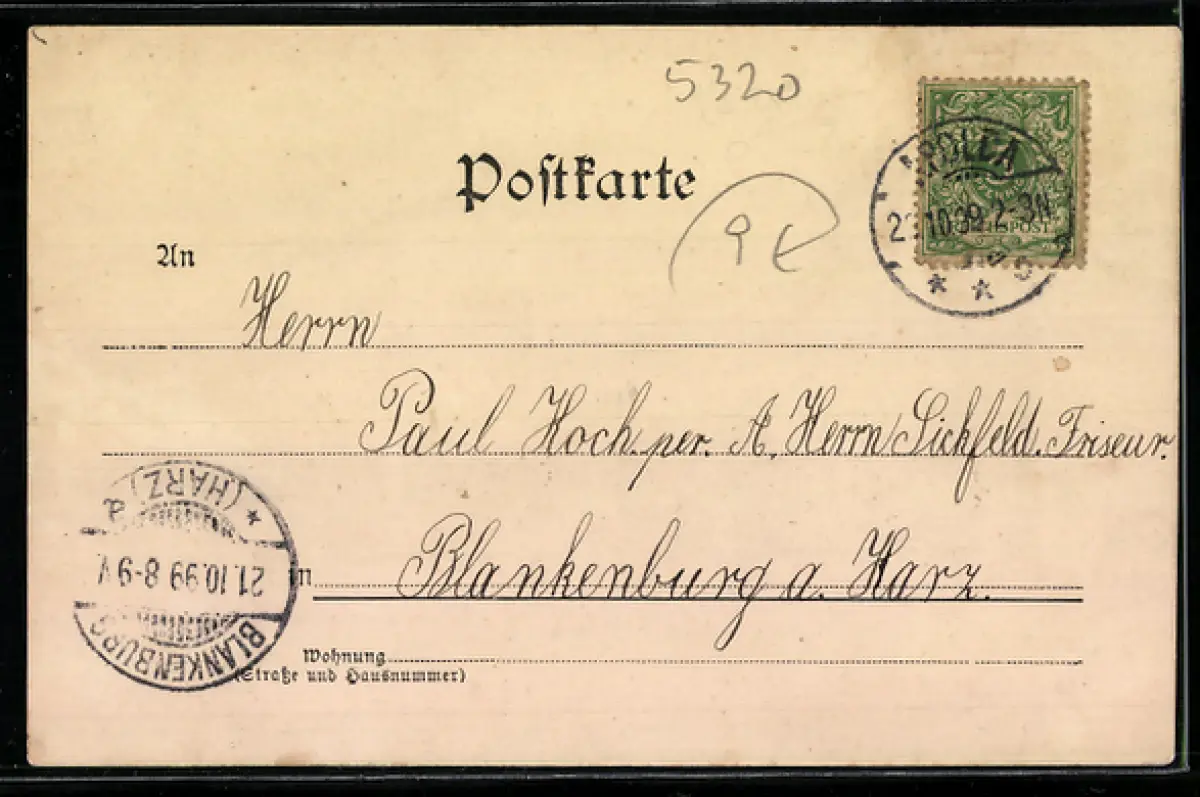 5320
Postkarte
9 €
APOLDA
2 .10.99.2-3N.
REICHSPOST
An
Herrn
Paul Koch. per. A. Herrn Sickfeld. Friseur.
in Blankenburg a. Harz.
* (HARZ) a
21.10.99 8-9V
BLANKENBURG
Wohnung
(Straße und Hausnummer)